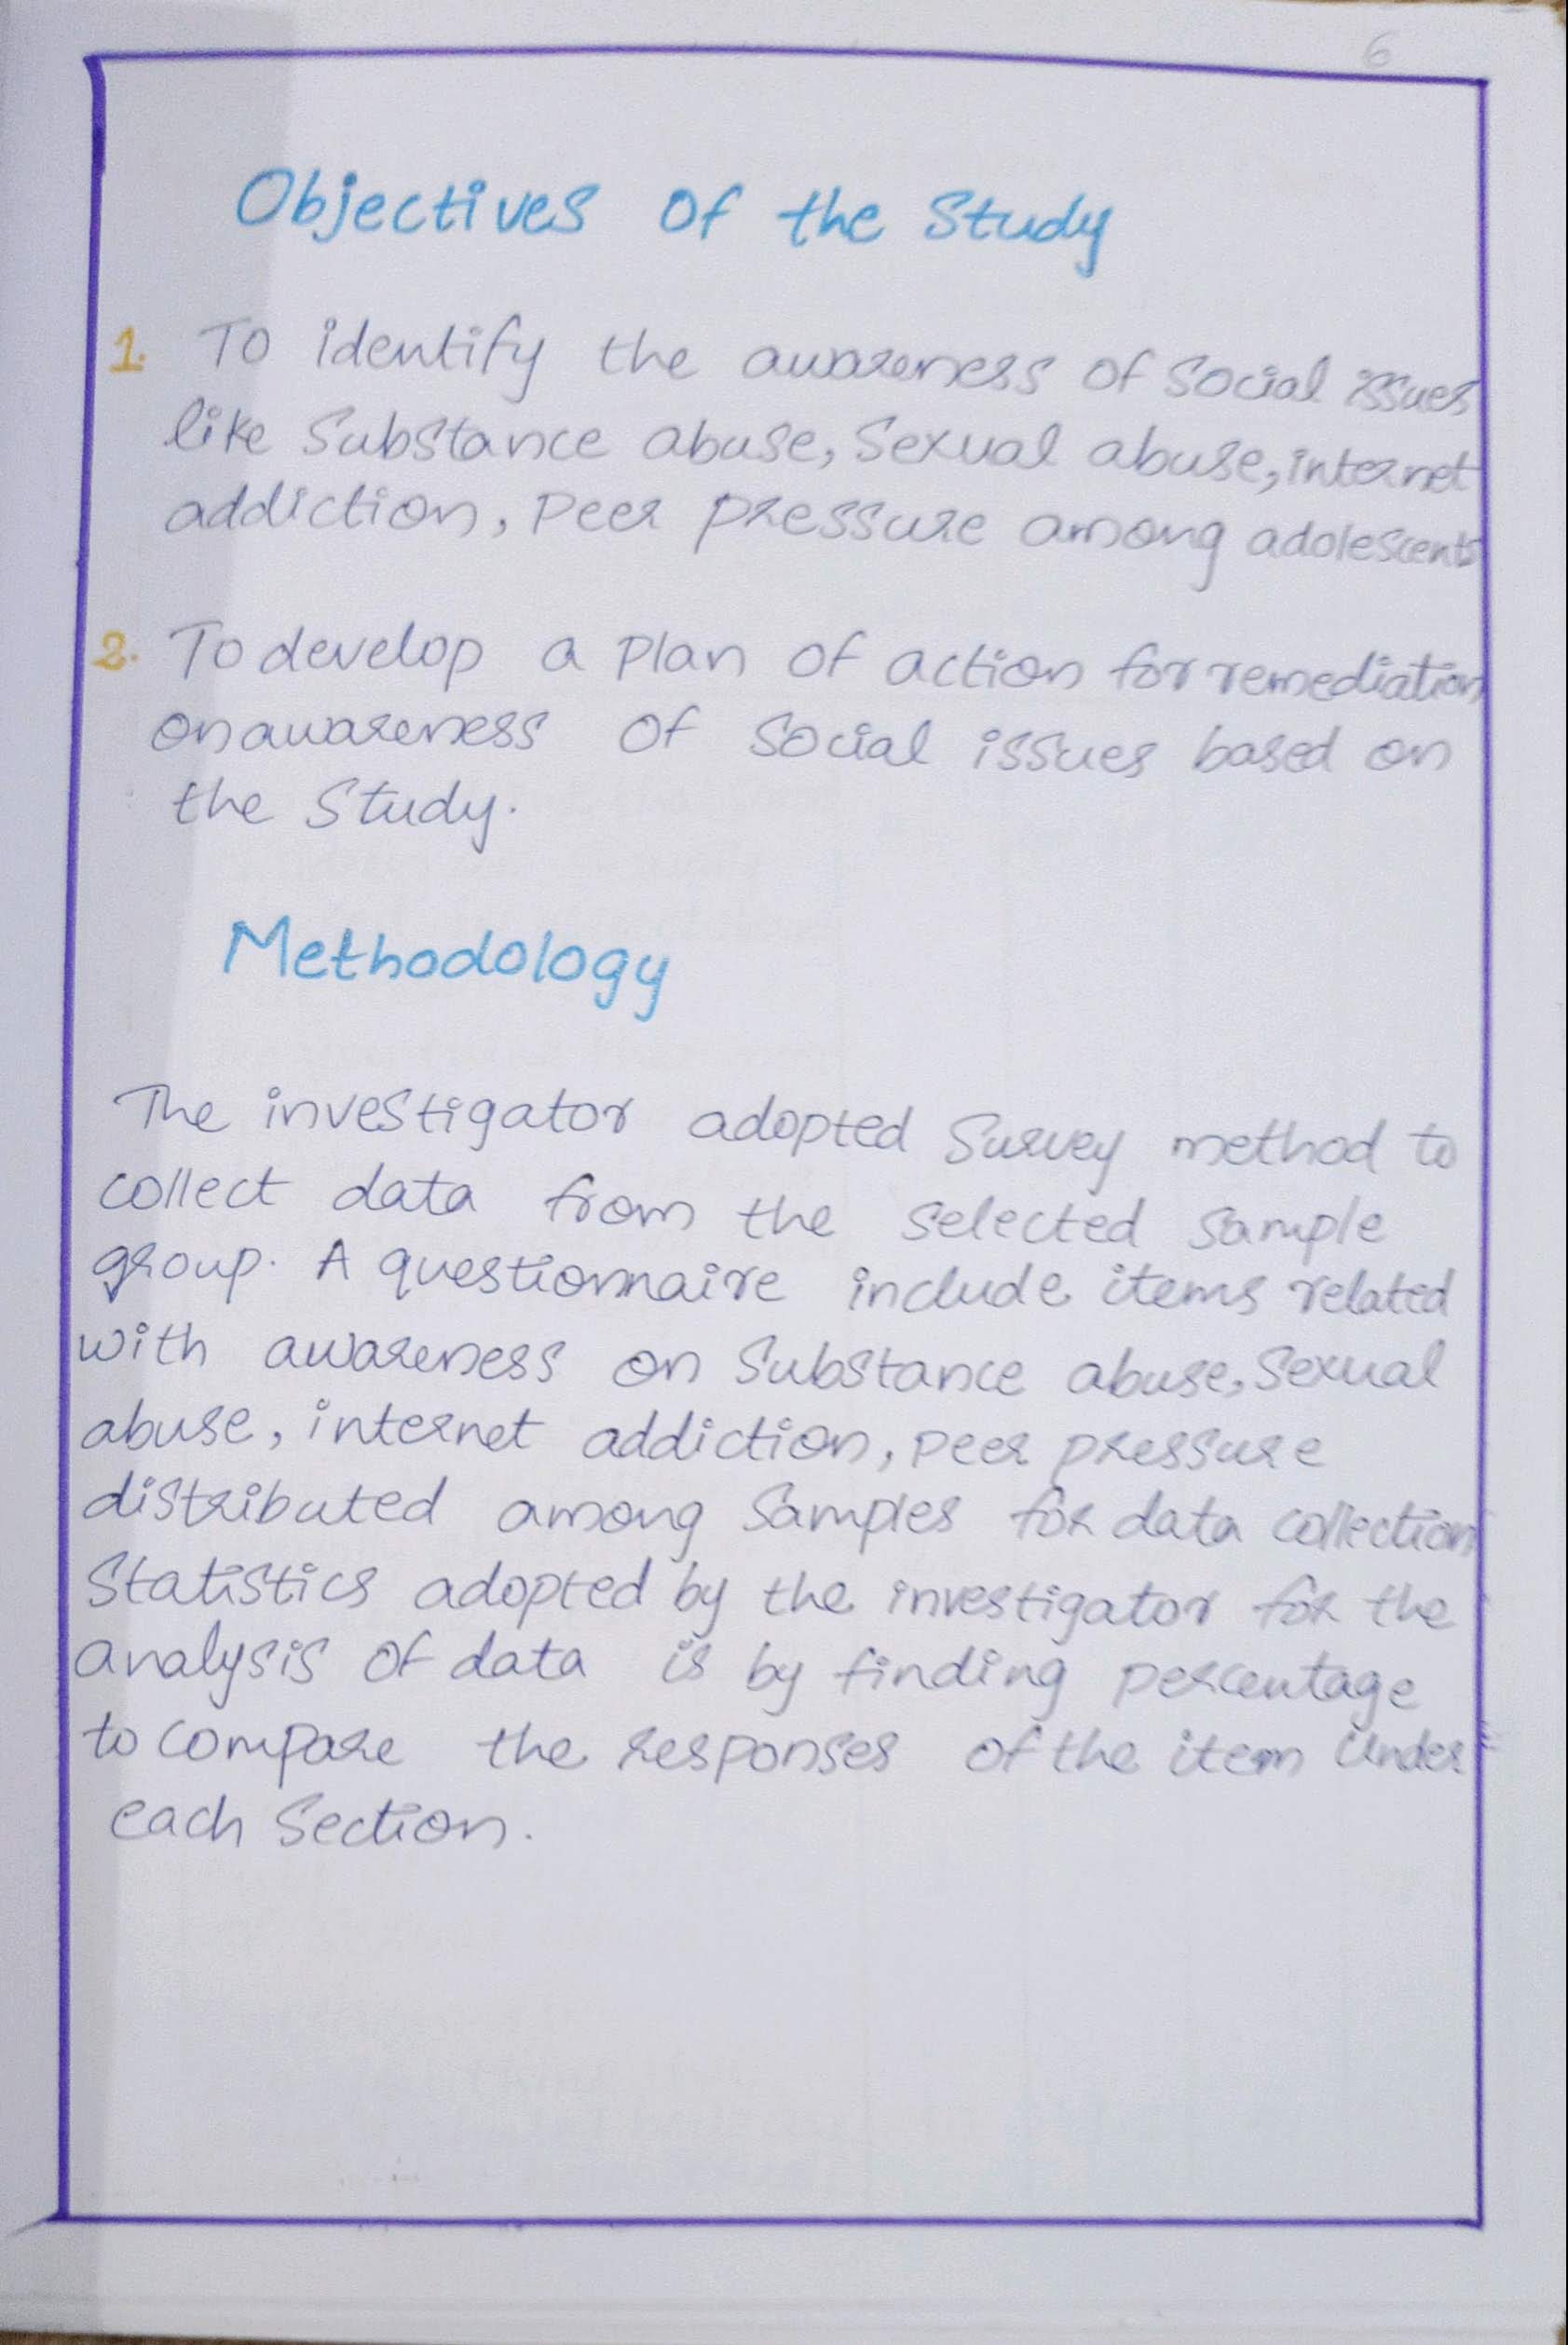 6
Objectives of the Study
1. To identify the awareness of Social issues
like Substance abuse, Sexual abuse, internet
addiction, Peer pressure among adolescents
2. To develop a Plan of action for remediation
on awareness of Social issues based on
the Study.
Methodology
The investigator adopted Survey method to
collect data from the selected sample
group. A questionnaire include items related
with awareness on Substance abuse, Sexual
abuse, internet addiction, peer pressure
distributed among Samples for data collection
Statistics adopted by the investigator for the
analysis of data is by finding percentage
to compare the responses of the item Under
each Section.